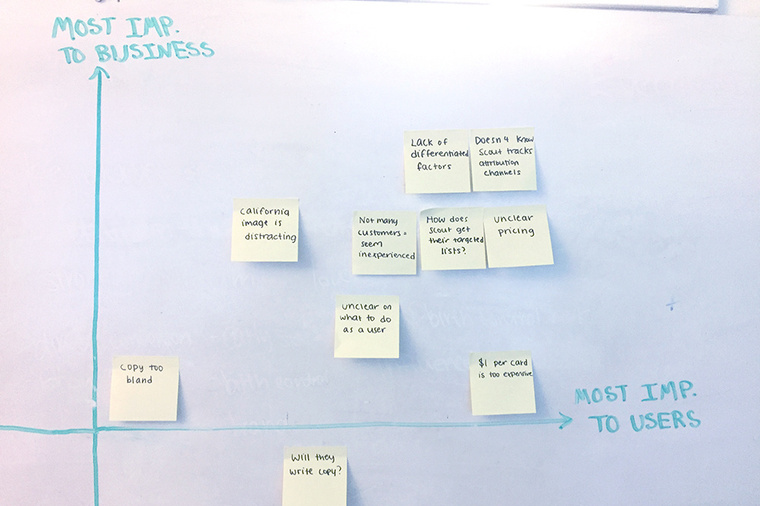 MOST IMP.
TO BUSINESS
Lack of
differentiated
factors
Doesn't know
Scout tracks
attribution
channels
California
image is
distracting
Not many
customers =
seem
inexperienced
How does
Scout get
their targeted
lists?
unclear
pricing
unclear on
what to do
as a user
copy too
bland
$1 per card
is too expensive
MOST IMP.
TO USERS
Will they
write copy?